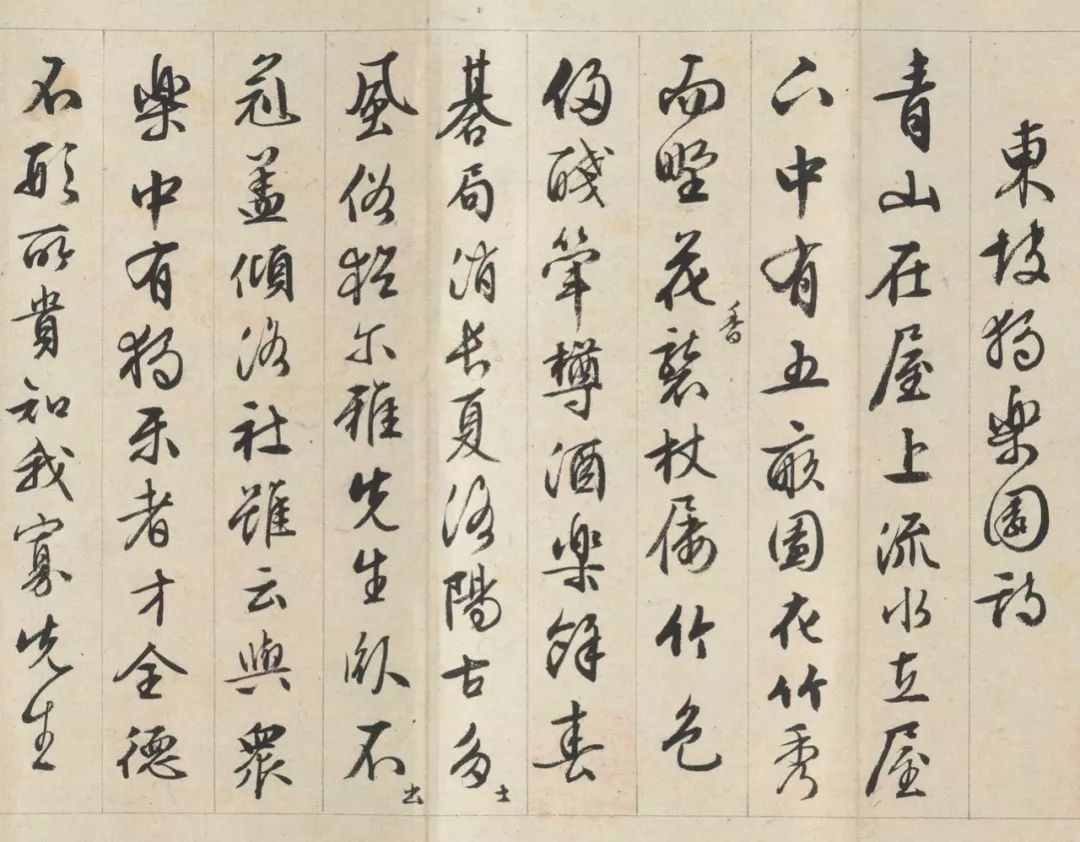 東坡獨樂園詩
青山在屋上流水在屋
下中有五畝園花竹秀
而野花香襲杖屨竹色
侵醆斝樽酒樂餘春
碁局消長夏洛陽古多士
風俗猶尔雅先生臥不出
冠盖傾洛社雖云與眾
樂中有獨樂者才全德
不形所貴知我寡先生